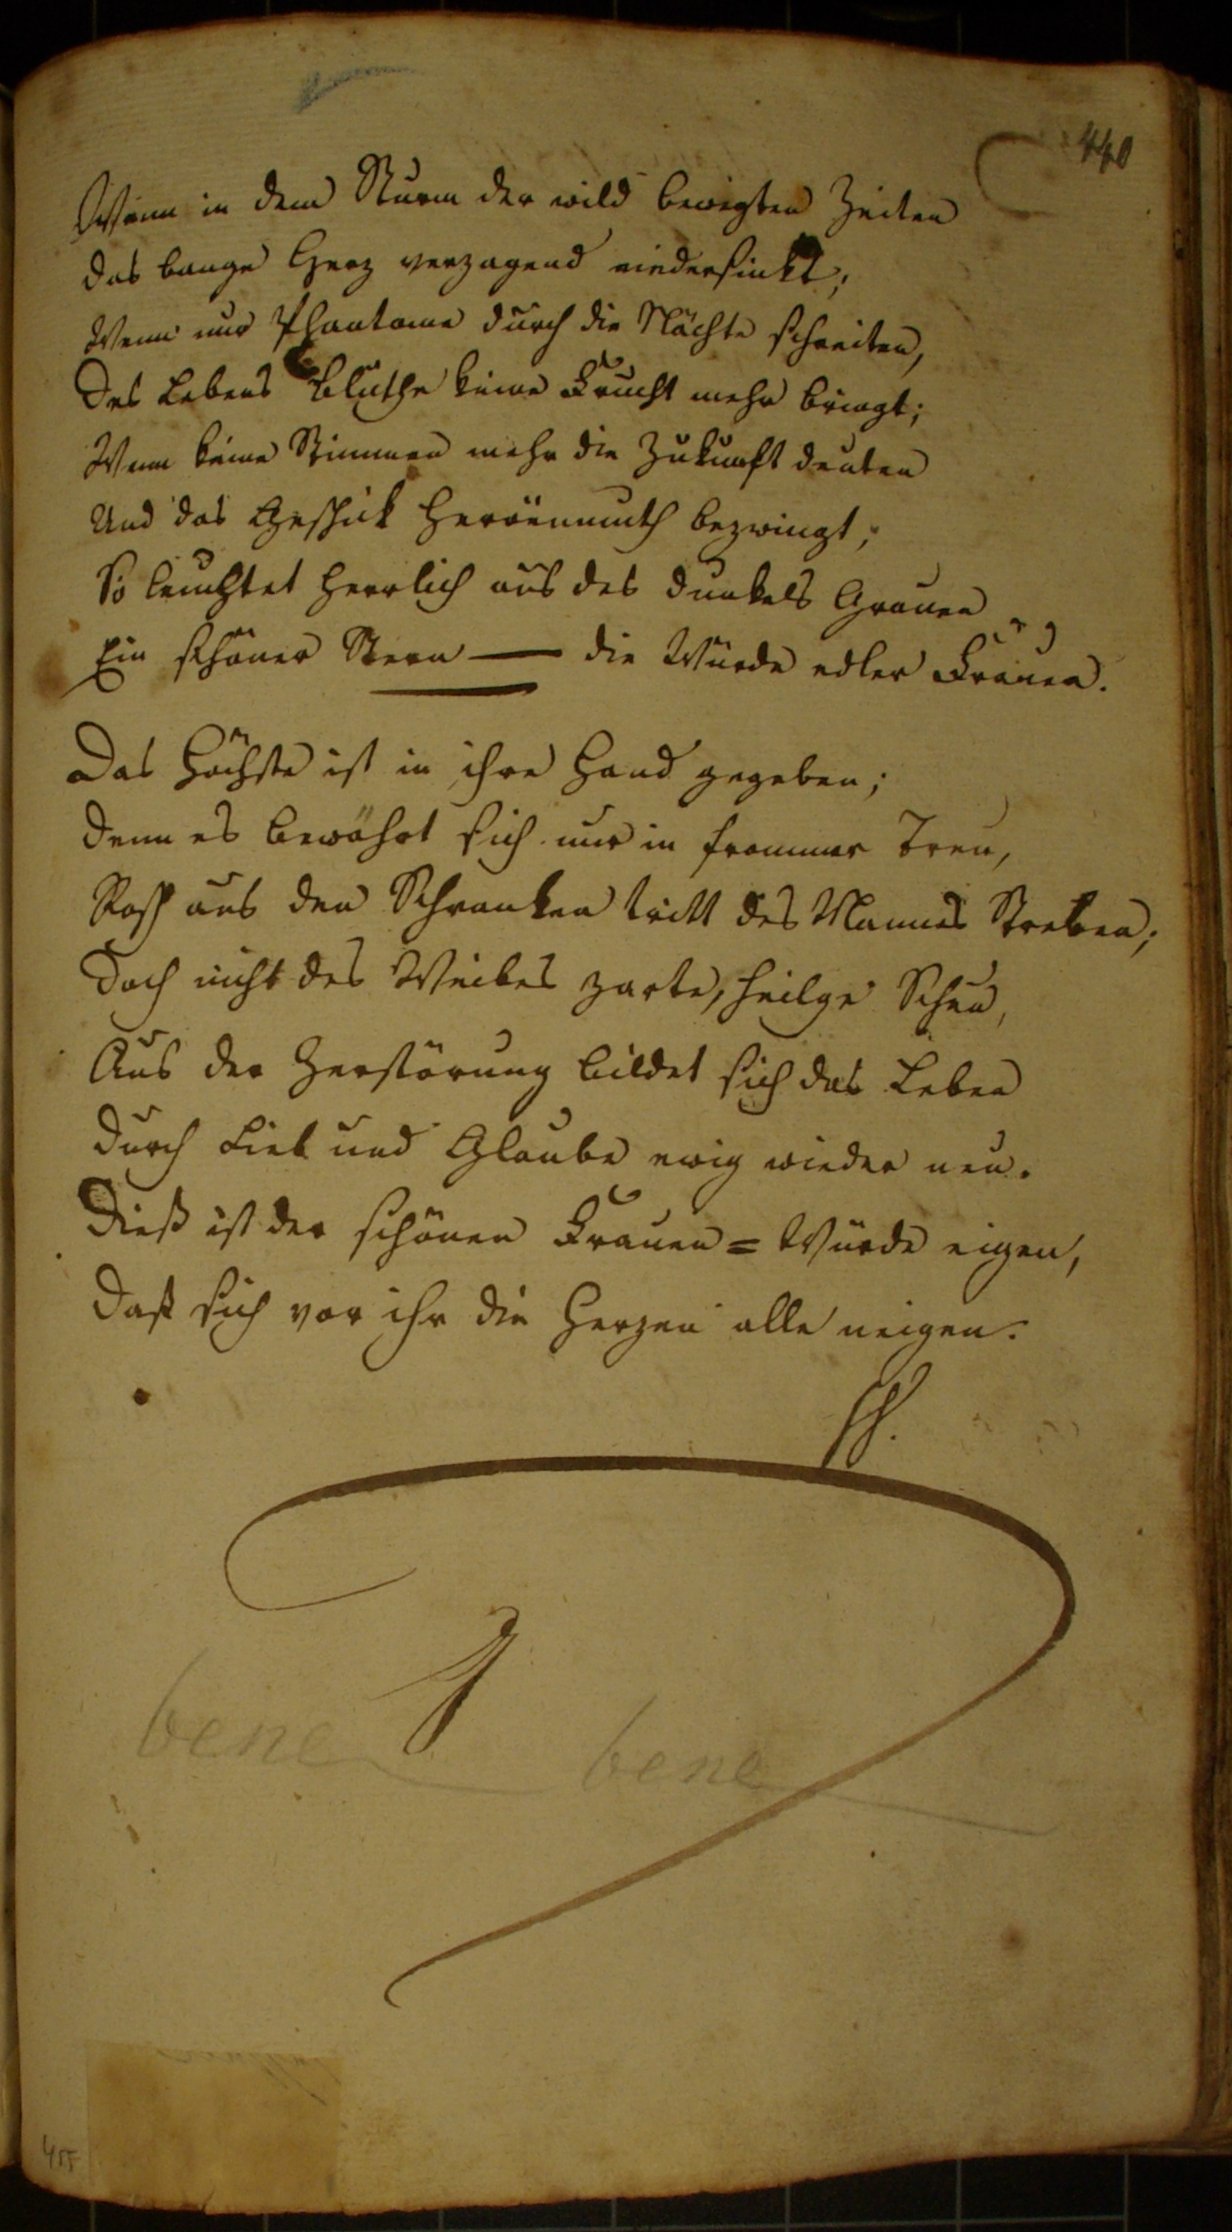 440
Wenn in dem Sturm der wild bewegten Zeiten
das bange Herz verzagend niedersinkt;
Wenn nur Phantome durch die Nächte schreiten,
Des Lebens Blüthe keine Frucht mehr bringt;
Wenn keine Stimmen mehr die Zukunft deuten
Und das Geschick Heroënmuth bezwingt;
So leuchtet herrlich aus des dunkels Grauen
Ein schöner Stern — die Würde edler Frauen.
Das Höchste ist in ihre Hand gegeben;
denn es bewährt sich nur in frommer Treu,
Rasch aus den Schranken tritt des Mannes Streben;
doch nicht des Weibes zarte, heilge Scheu,
Aus der Zerstörung bildet sich das Leben
durch Lieb und Glaube ewig wieder neu.
Dieß ist der schönen Frauen = Würde eigen,
daß sich vor ihr die Herzen alle neigen.
bene bene
455